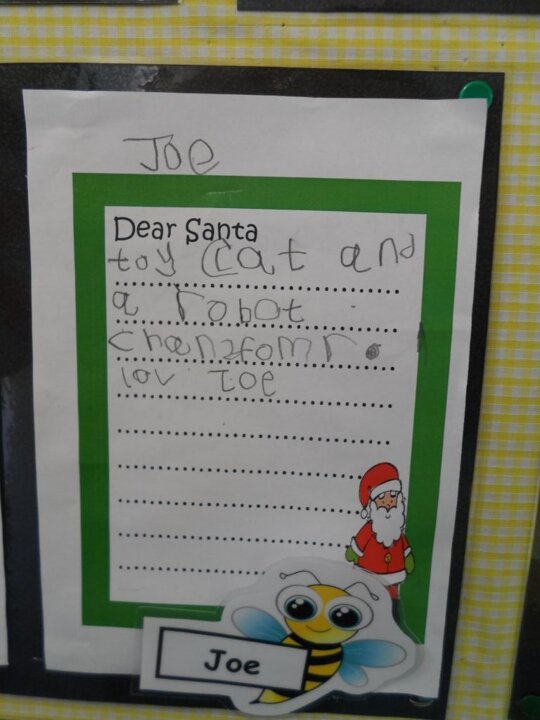 Joe
Dear Santa
toy Cat and
a robot
chanzfomr.
lov Joe
Joe